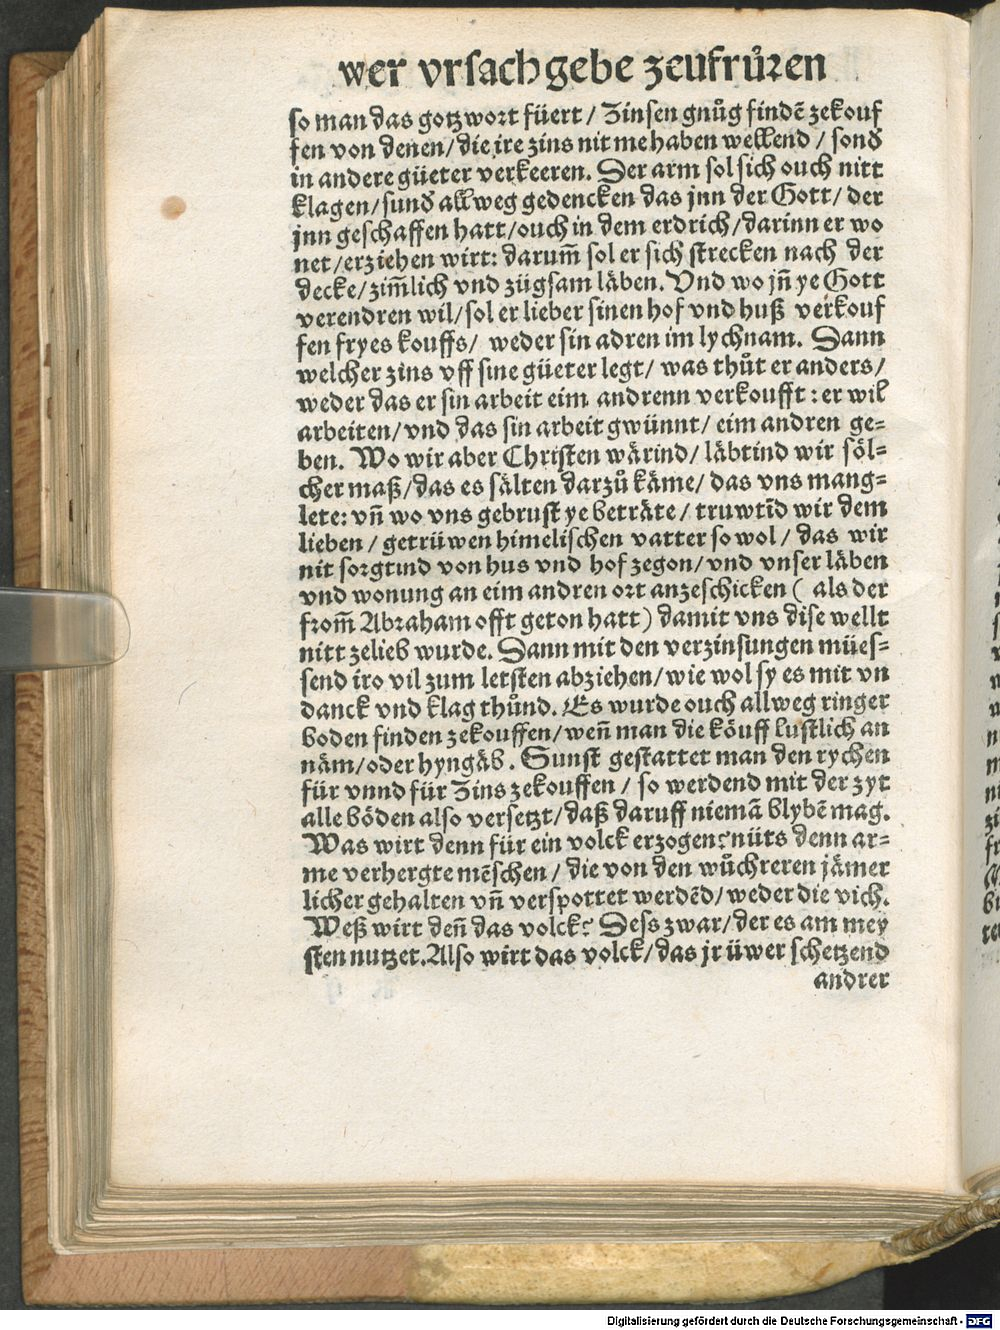 wer vrsach gebe zeufrůren
so man das gotzwort füert / Zinsen gnůg findẽ zekouf
fen von denen / die ire zins nit me haben wellend / sond̕
in andere güeter verkeeren. Der arm sol sich ouch nitt
klagen / sund̕ allweg gedencken das jnn der Gott / der
jnn geschaffen hatt / ouch in dem erdrich / darinn er wo
net / erziehen wirt: darum̃ sol er sich strecken nach der
decke / zim̃lich vnd zügsam läben. Vnd wo jñ ye Gott
verendren wil / sol er lieber sinen hof vnd huß verkouf
fen fryes kouffs / weder sin adren im lychnam. Dann
welcher zins vff sine güeter legt / was thůt er anders /
weder das er sin arbeit eim andrenn verkoufft : er wil
arbeiten / vnd das sin arbeit gwünnt / eim andren ge=
ben. Wo wir aber Christen wärind / läbtind wir söl=
cher maß / das es sälten darzů käme / das vns mang=
lete: vñ wo vns gebrust ye beträte / truwtĩd wir dem
lieben / getrüwen himelischen vatter so wol / das wir
nit sorgtind von hus vnd hof zegon / vnd vnser läben
vnd wonung an eim andren ort anzeschicken ( als der
from̃ Abraham offt geton hatt ) damit vns dise wellt
nitt zelieb wurde. Dann mit den verzinsungen mües=
send iro vil zum letsten abziehen / wie wol sy es mit vn
danck vnd klag thůnd. Es wurde ouch allweg ringer
boden finden zekouffen / weñ man die köuff lustlich an
näm / oder hyngäb. Sunst gestattet man den rychen
für vnnd für Zins zekouffen / so werdend mit der zyt
alle böden also versetzt / daß daruff niemã blybẽ mag.
Was wirt denn für ein volck erzogen? nüts denn ar=
me verhergte mẽschen / die von den wůchreren jämer
licher gehalten vñ verspottet werdẽd / weder die vich.
Weß wirt deñ das volck? Dess zwar / der es am mey
sten nutzet. Also wirt das volck / das jr üwer schetzend
andrer
Digitalisierung gefördert durch die Deutsche Forschungsgemeinschaft - DFG